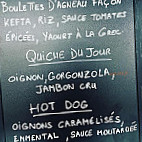 BOULETTES D'AGNEAU FAÇON
KEFTA, RIZ, SAUCE TOMATES
ÉPICÉES, YAOURT À LA GREC
QUICHE DU JOUR
OIGNON, GORGONZOLA,
JAMBON CRU
HOT DOG
OIGNONS CARAMÉLISÉS,
EMMENTAL, SAUCE MOUTARDÉE